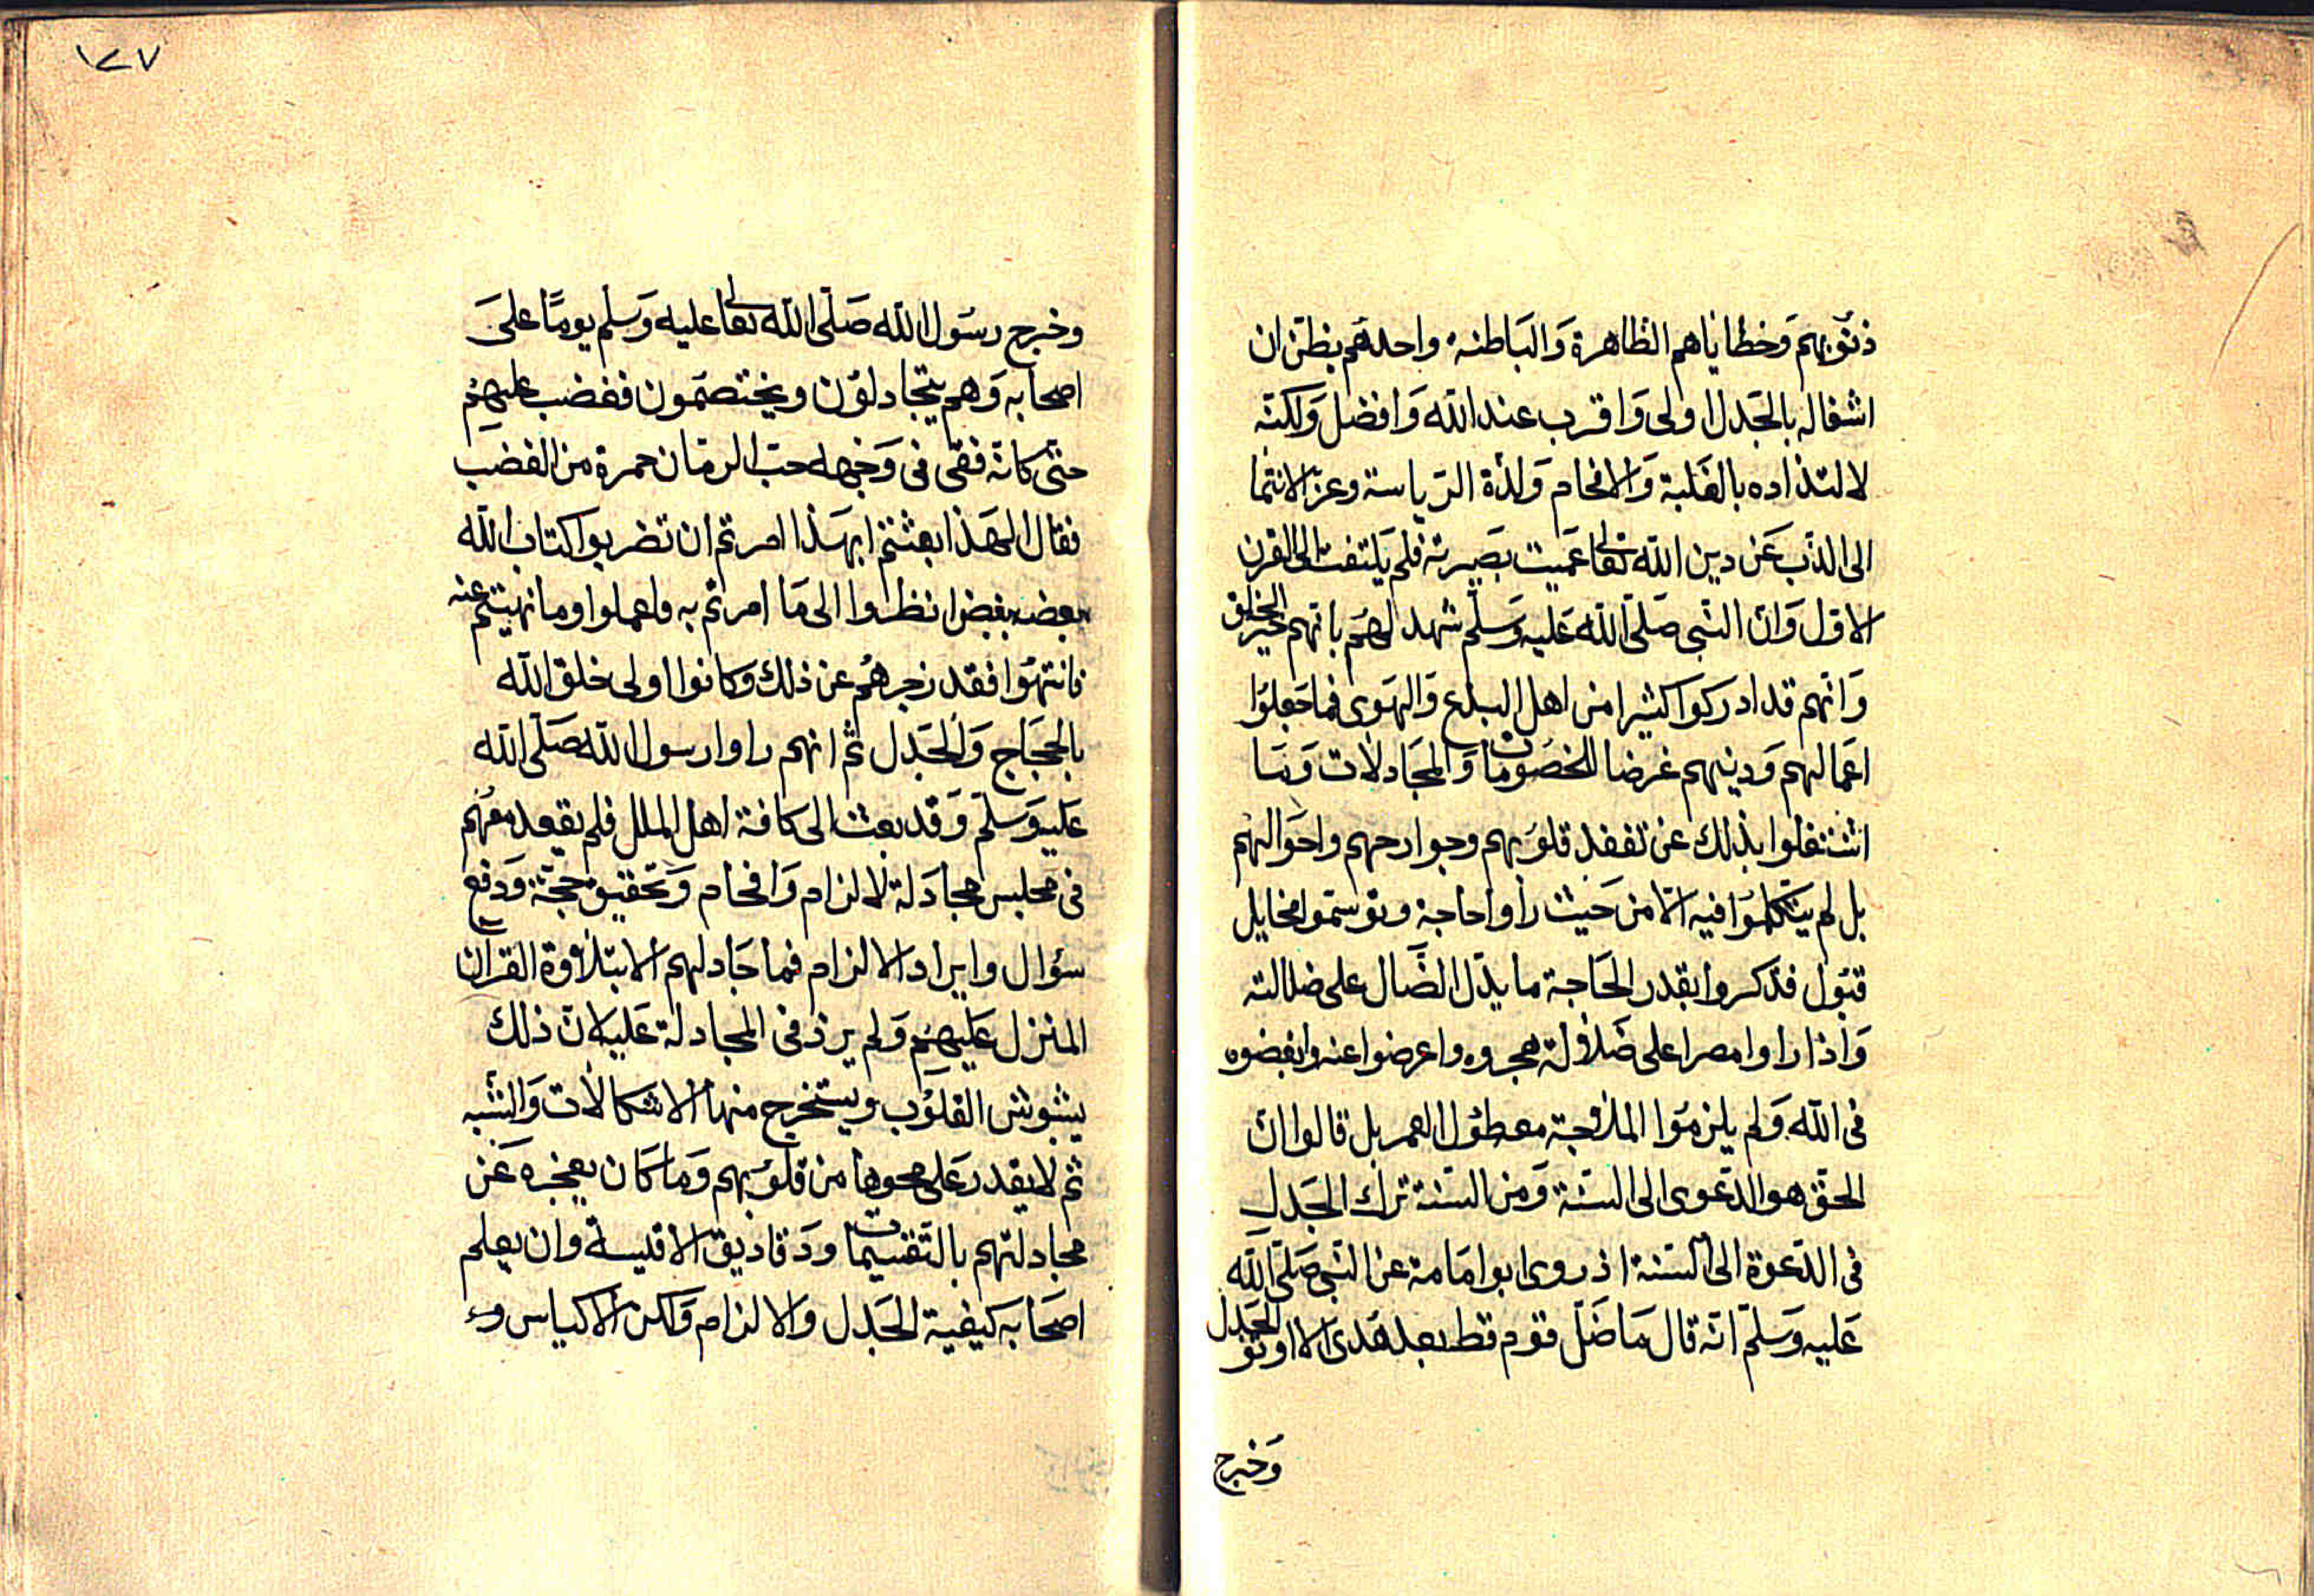 ذنوبهم وخطاياهم الظاهرة والباطنه واحدهم يظن ان
اشغاله بالجدل اولى واقرب عند الله وافضل ولكنه
لالتذاذه بالغلبة والافحام ولذة الرياسة وعز الانتما
الى الذب عن دين الله تعالى عميت بصيرته فلم يلتفت الى القرن
الاول وان النبى صلى الله عليه وسلم شهد لهم بانهم خير الخلق
وانهم قد ادركوا كثيرا من اهل البدع والهوى فما جعلوا
اعمالهم ودينهم غرضا للخصومات والمجادلات وما
اشتغلوا بذلك عن تفقد قلوبهم وجوارحهم واحوالهم
بل لم يتكلموا فيه الا من حيث راوا حاجة وتوسموا مخايل
قبول فذكروا بقدر الحاجة ما يدل الضال على ضلالته
واذا راوا مصرا على ضلالة هجروه واعرضوا عنه وابغضوه
فى الله ولم يلزموا الملاوجة مع طول العمر بل قالوا ان
الحق هو الدعوى الى السنة ومن السنة ترك الجدل
فى الدعوة الى السنة اذ روى ابو امامة عن النبى صلى الله
عليه وسلم انه قال ما ضل قوم قط بعد هدى الا اوتو الجدل
وخرج
١٢٧
وخرج رسول الله صلى الله تعالى عليه وسلم يوما على
اصحابه وهم يتجادلون ويختصمون فغضب عليهم
حتى كانه فقى فى وجهه حب الرمان حمرة من الغضب
فقال الهذا بعثتم ابهذا امرتم ان تضربوا كتاب الله
بعضه ببعض انظروا الى ما امرتم به فاعملوا وما نهيتم عنه
فانتهوا فقد زجرهم عن ذلك وكانوا اولى خلق الله
بالحجاج والجدل ثم انهم راوا رسول الله صلى الله
عليه وسلم وقد بعث الى كافة اهل الملل فلم يقعد معهم
فى مجلس مجادلة لالزام وافحام وتحقيق حجة ودفع
سؤال وايراد الالزام فما جادلهم الا بتلاوة القران
المنزل عليهم ولم يرد فى المجادلة عليه لان ذلك
يشوش القلوب ويستخرج منها الاشكالات والشبه
ثم لا يقدر على محوها من قلوبهم وما كان يعجزه عن
مجادلتهم بالتقسيمات ودقاديق الاقيسة وان يعلم
اصحابه كيفية الجدل والالزام ولكن الاكياس و